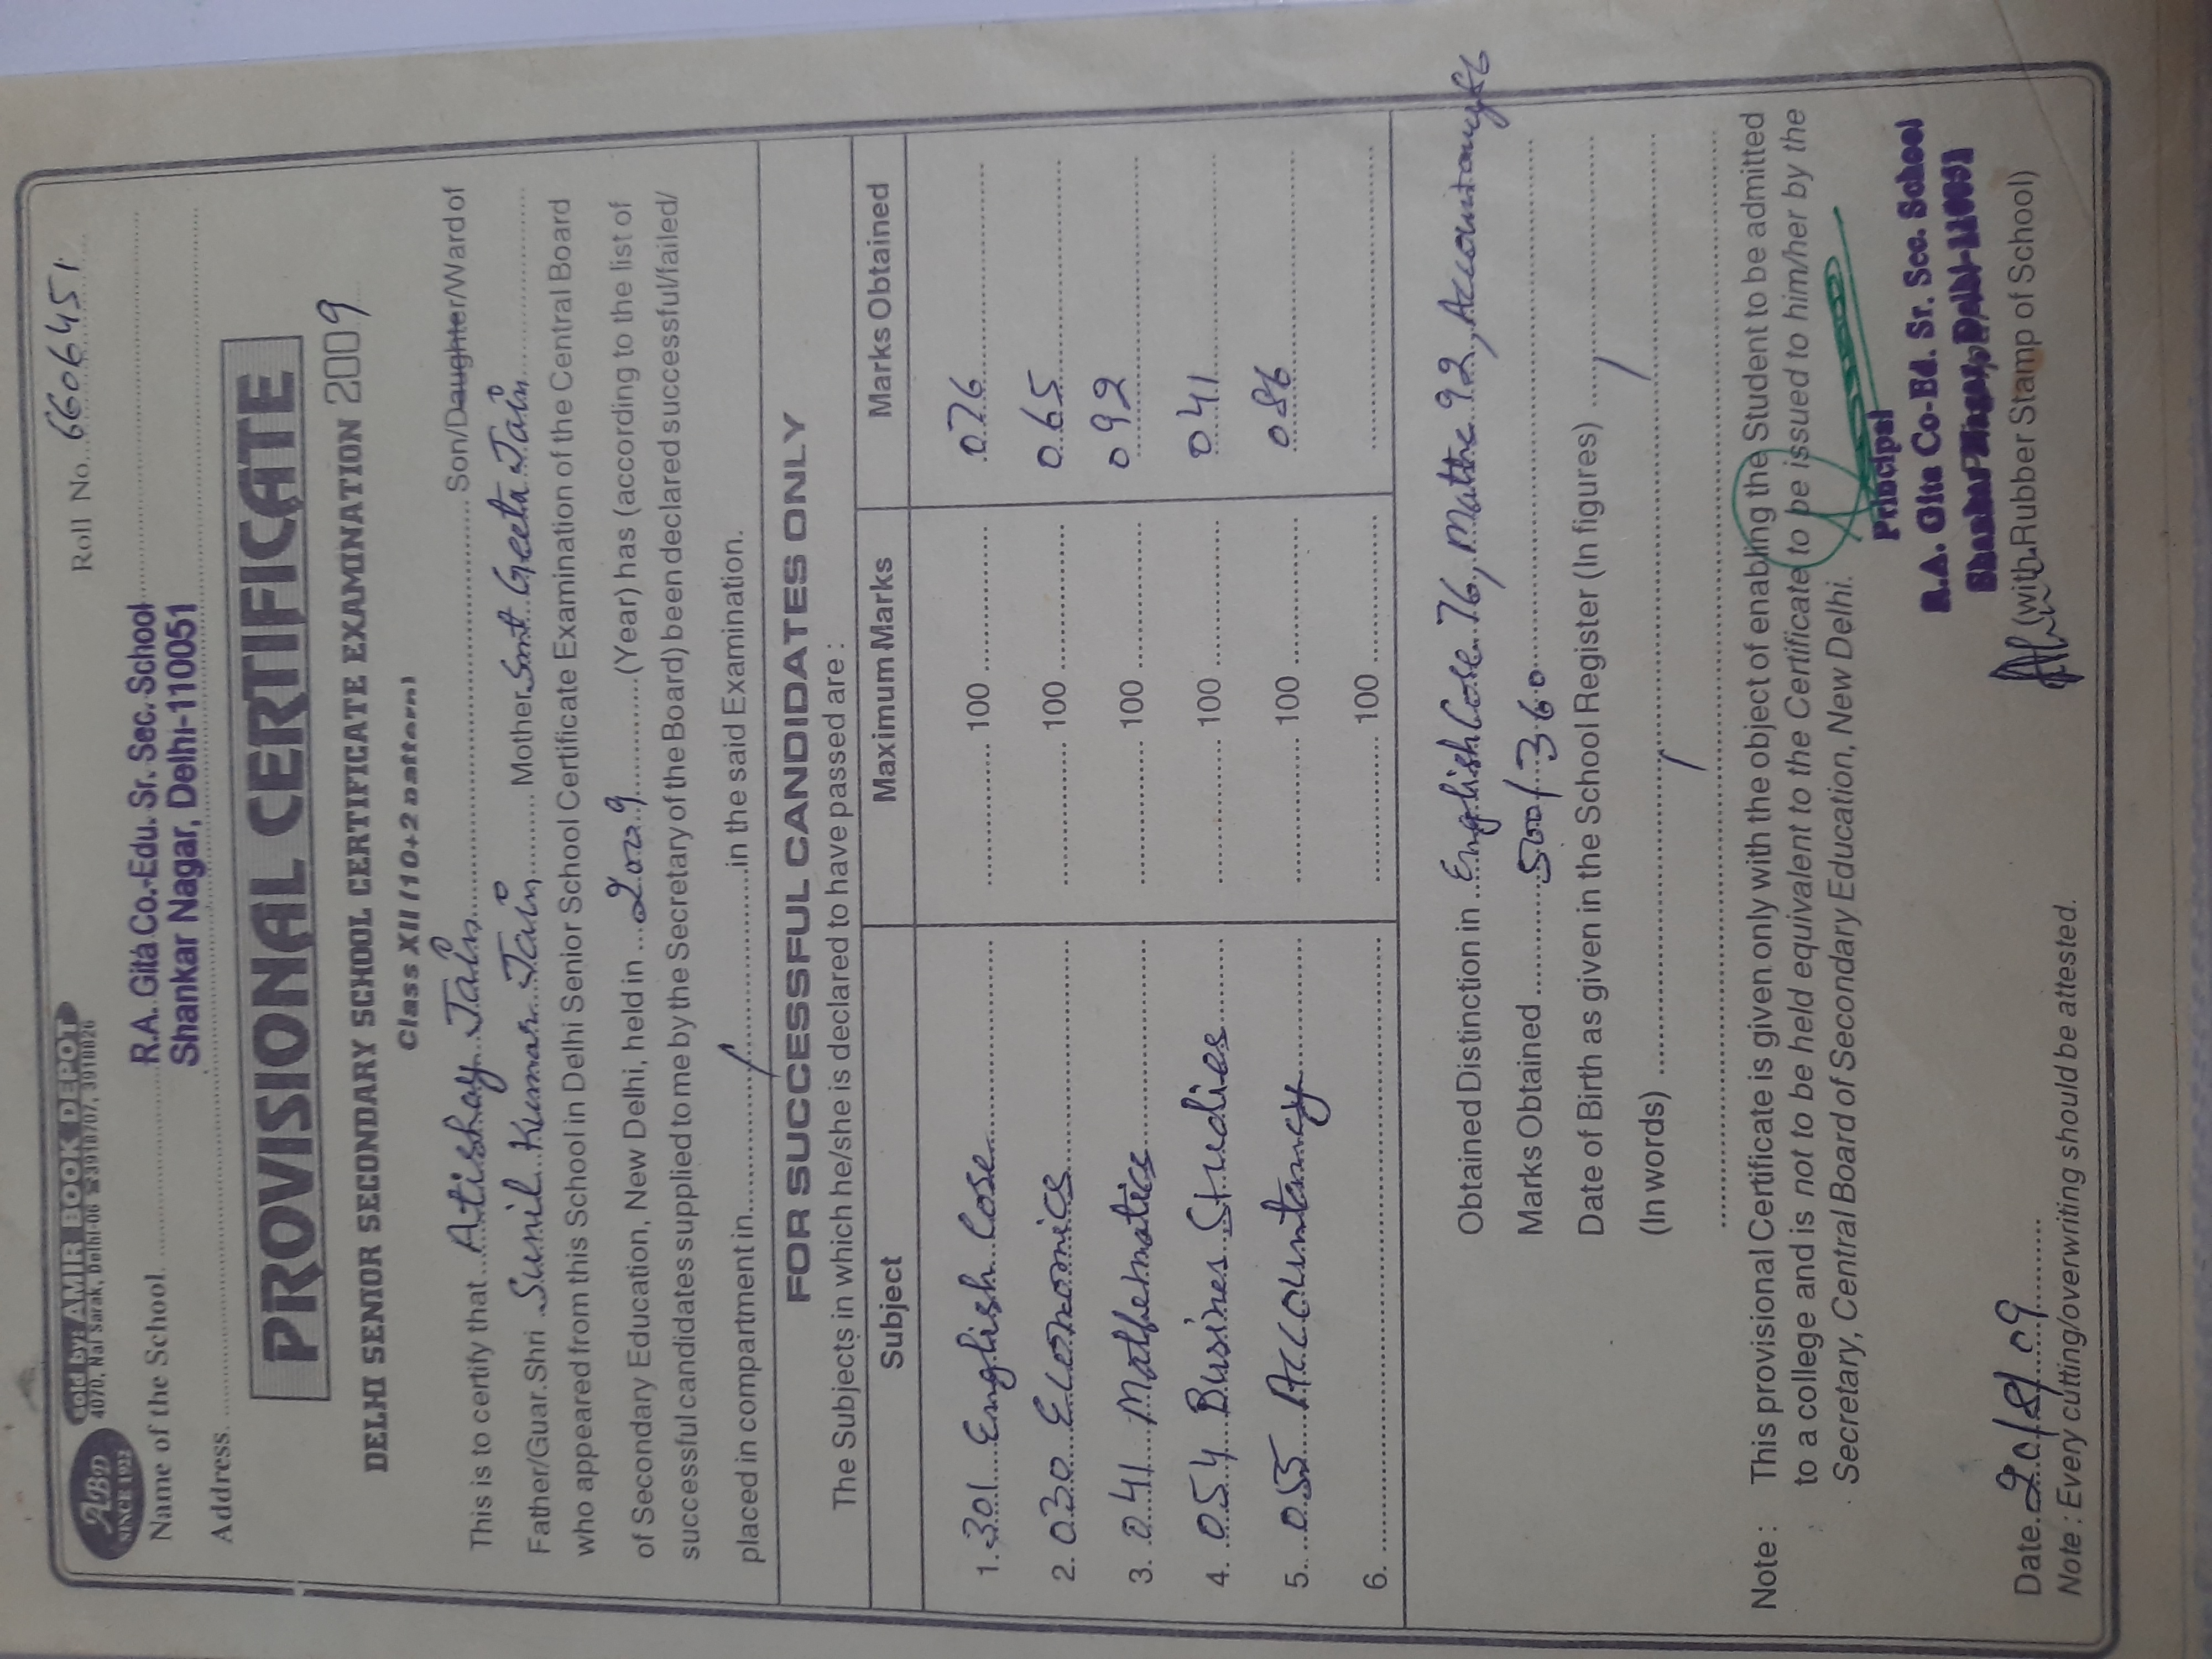 ABD
SINCE 1922
Sold by: AMIR BOOK DEPOT
4070, Nai Sarak, Delhi-06
Roll No. 6606451
Name of the School R.A. Gita Co.-Edu. Sr. Sec. School
Address Shankar Nagar, Delhi-110051
PROVISIONAL CERTIFICATE
DELHI SENIOR SECONDARY SCHOOL CERTIFICATE EXAMINATION 2009
Class XII (10+2 Pattern)
This is to certify that Atishay Jain Son/Daughter/Ward of
Father/Guar. Shri Sunil Kumar Jain Mother Smt. Geeta Jain
who appeared from this School in Delhi Senior School Certificate Examination of the Central Board
of Secondary Education, New Delhi, held in 2009 (Year) has (according to the list of
successful candidates supplied to me by the Secretary of the Board) been declared successful/failed/
placed in compartment in / in the said Examination.
FOR SUCCESSFUL CANDIDATES ONLY
The Subjects in which he/she is declared to have passed are :
Subject Maximum Marks Marks Obtained
1. 301 English Cose 100 076
2. 030 Economics 100 065
3. 041 Mathematics 100 092
4. 054 Business Studies 100 041
5. 055 Accountancy 100 086
6. 100
Obtained Distinction in English Cose 76, Maths 92,
Marks Obtained 500/360
Date of Birth as given in the School Register (In figures) /
(In words) /
Note : This provisional Certificate is given only with the object of enabling the Student to be admitted
to a college and is not to be held equivalent to the Certificate to be issued to him/her by the
Secretary, Central Board of Secondary Education, New Delhi.
Principal
R.A. Gita Co-Ed. Sr. Sec. School
Shankar Nagar, Delhi-110051
(with Rubber Stamp of School)
Date 20/8/09
Note : Every cutting/overwriting should be attested.